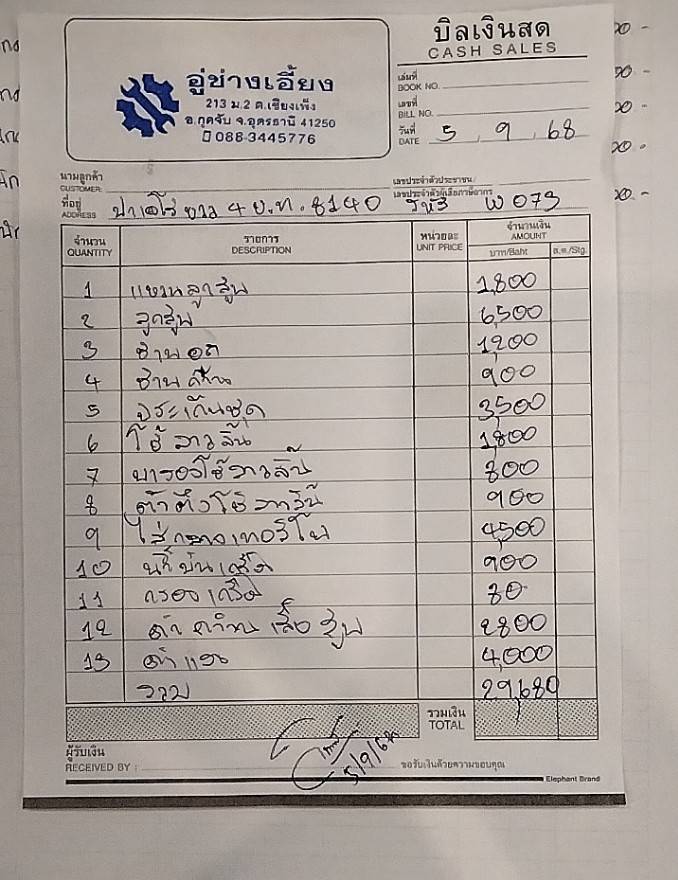 บิลเงินสด
CASH SALES
อู่ช่างเอี้ยง
213 ม.2 ต.เชียงเพ็ง
อ.กุดจับ จ.อุดรธานี 41250
088-3445776
เล่มที่
BOOK NO.
เลขที่
BILL NO.
วันที่
DATE 5 9 68
นามลูกค้า
CUSTOMER
เลขประจำตัวประชาชน
เลขประจำตัวผู้เสียภาษีอากร
ที่อยู่
ADDRESS ปาเจโร่ ขาว 4 ข.ท. 8140 W 073
จำนวน รายการ หน่วยละ จำนวนเงิน
QUANTITY DESCRIPTION UNIT PRICE AMOUNT
บาท/Baht ส.ต./Stg.
1 แหวนลูกสูบ 1,800
2 ลูกสูบ 6,500
3 ชาพอก 1,200
4 ชาพก้าน 900
5 ปะเก็นชุด 3,500
6 โซ่ราวลิ้น 1,800
7 ยางรองโซ่ราวลิ้น 800
8 ตัวตึงโซ่ราวลิ้น 900
9 ไส้กลางเทอร์โบ 4,500
10 น้ำมันเครื่อง 900
11 กรองเครื่อง 80
12 ค่าคว้านเสื้อสูบ 2800
13 ค่าแรง 4,000
รวม 29,680
รวมเงิน
TOTAL
ผู้รับเงิน
RECEIVED BY :
5/9/68
ขอรับเงินด้วยความขอบคุณ
Elephant Brand